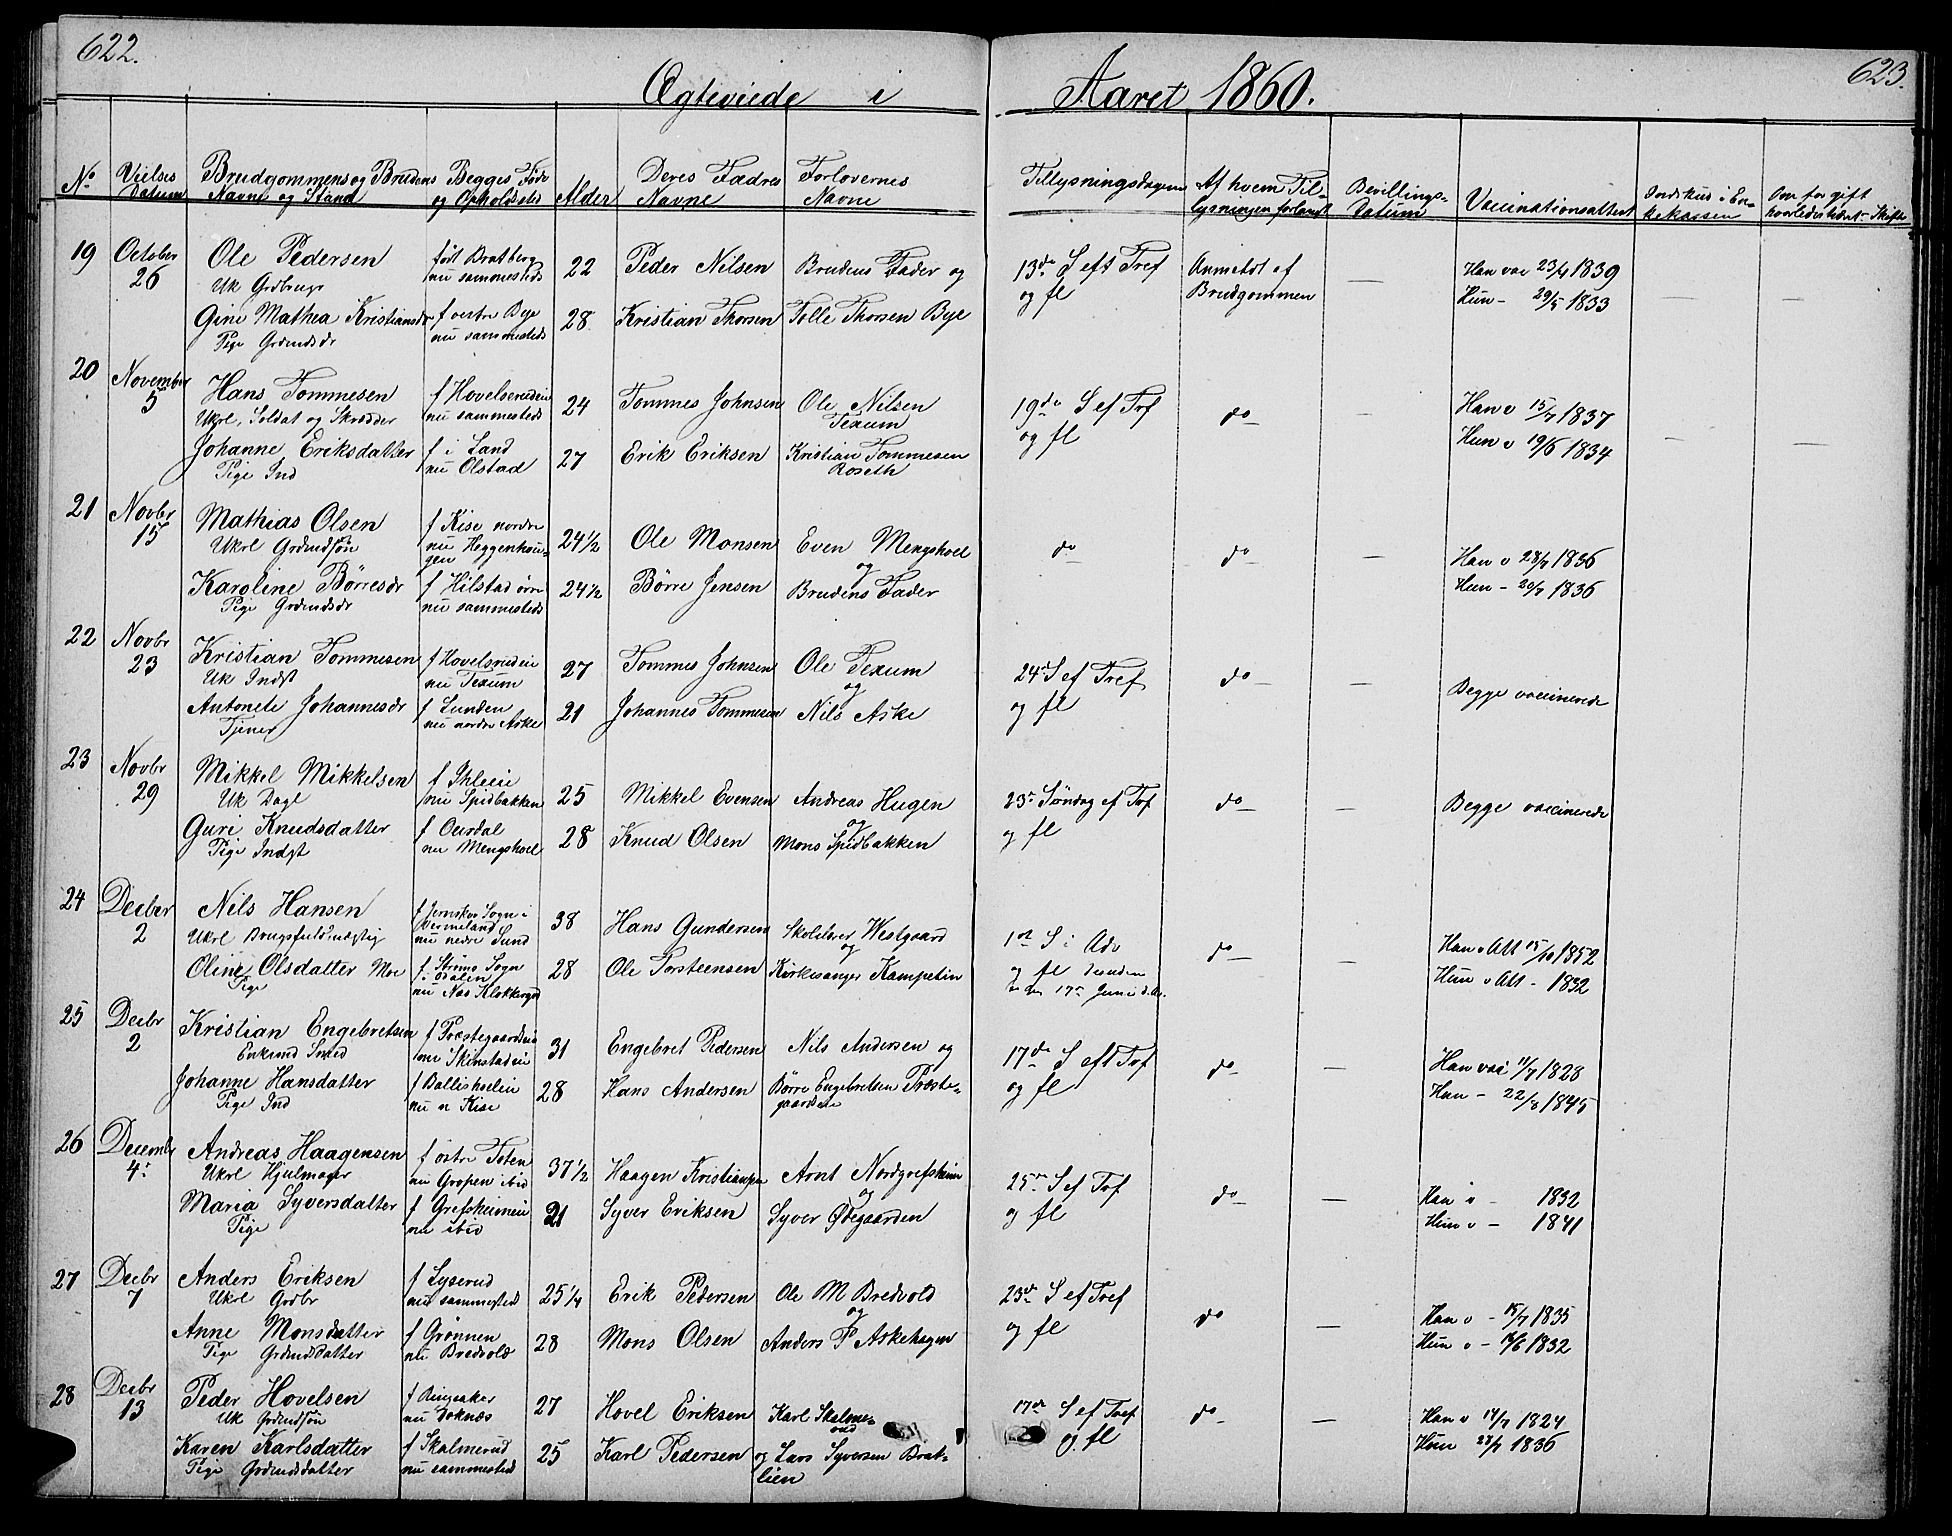 622.
623.
Ægteviede i Aaret 1860.
No
Vielses Datum
Brudgommens og Brudens Navne og Stand
Begges Føde og Opholdssted
Alder
Deres Fædres Navne
Forlovernes Navne
Tillysningsdagene
Af hvem Tillysningen forlangt
Bevillings-Datum
Vaccinationsattest
Indskud i Enkekassen
Om før gift
19 October 26 Ole Pedersen født Bratberg nu sammesteds 22 Peder Nilsen Brudens Fader og 13de S eft Tref og fl Anmeldt af Brudgommen — Han vac 23/4 1839
Uk Grdbruger
Gine Mathea Kristiansdr f vestre Bye nu sammesteds 28 Kristian Thorsen Tolle Thorsen Bye Hun - 29/5 1833 — —
Pige Grdmdsdr
20 November 5 Hans Tommesen f Hovelsrudeie nu sammesteds 24 Tommes Johnsen Ole Nilsen Texum 19de S ef Tref og fl do — Han v 15/7 1837
Ukrl, Soldat og Skrædder
Johanne Eriksdatter f i Land nu Olstad 27 Erik Eriksen Kristian Tommesen Roseth Hun v 19/6 1834 — —
Pige Ind
21 Novbr 15 Mathias Olsen f Kise nordre nu Heggenhougen 24 1/2 Ole Monsen Even Mengshoel og do do — Han v 28/7 1836
Ukrl Grdmdsøn
Karoline Børresdr f Hilstad nu sammesteds 24 1/2 Børre Jensen Brudens Fader Hun - 20/7 1836
Pige Grdmdsdr
22 Novbr 23 Kristian Tommesen f Hovelsrudeie nu Texum 27 Tommes Johnsen Ole Texum og 24 S ef Tref og fl do — Begge vaccinerede
Uk Indst
Antonete Johannesdr f Lunden nu nordre Aske 21 Johannes Tommesen Nils Aske
Tjener
23 Novbr 29 Mikkel Mikkelsen f Ihleeie nu Spidbakken 25 Mikkel Evensen Andreas Hugen og 23de Søndag ef Tref og fl do — Begge vaccinerede
Uk Dagl
Guri Knudsdatter f Ourdal nu Mengshoel 28 Knud Olsen Mons Spidbakken
Pige Indgt
24 Decber 2 Nils Hansen f Jernskov Sogn i Vermeland nu nedre Sund 38 Hans Gundersen Skolelærer Westgaard og 1ste S i Adv og fl do — Han v Att 15/10 1852
Ukrl Brugsfuldmægtig
Oline Olsdatter Moe f Strøms Sogn i Odalen nu Næs Klokkergd 28 Ole Torsteensen Kirkesanger Kampelin 17de Juni d.A. Hun v Att - 1832
Pige
25 Decbr 2 Kristian Engebretsen f Præstegaardseie nu Skinstadeie 31 Engebret Pedersen Nils Andersen og 17de S eft Tref og fl do — Han vac 11/7 1828
Enkemd Smed
Johanne Hansdatter f Ballishoeleie nu n Kise 28 Hans Andersen Børre Engebretsen Præstegaardseie Hun - 22/8 1845
Pige Ind
26 Decembr 4: Andreas Haagensen f østre Toten nu Gropen ibid 37 1/2 Haagen Kristiansen Arnt Nordgrefsheim og 25de S ef Tref og fl do — Han v - 1832
Ukrl Hjulmager
Maria Syversdatter f Grefsheimeie nu ibid 21 Syver Eriksen Syver Ødegaarden Hun v - 1841
Pige
27 Decbr 7 Anders Eriksen f Lyserud nu sammested 25 1/4 Erik Pedersen Ole M Bredvold og 23de S ef Tref og fl do — Han v - 15/7 1835
Ukrl Grdbr
Anne Monsdatter f Grønnen nu Bredvold 28 Mons Olsen Anders P Askehagen Hun v - 1832
Pige Grdmdsdatter
28 Decbr 13 Peder Hovelsen f Ringsaker nu Doknæs 27 Hovel Eriksen Karl Skalmerud 17de S ef Tref og fl do — Han v 14/7 1824
Uk Grdmdsøn
Karen Karlsdatter f Skalmerud nu sammested 25 Karl Pedersen og Lars Syversen Bratlien Hun 28/7 1836
Pige Grdmdsdatter